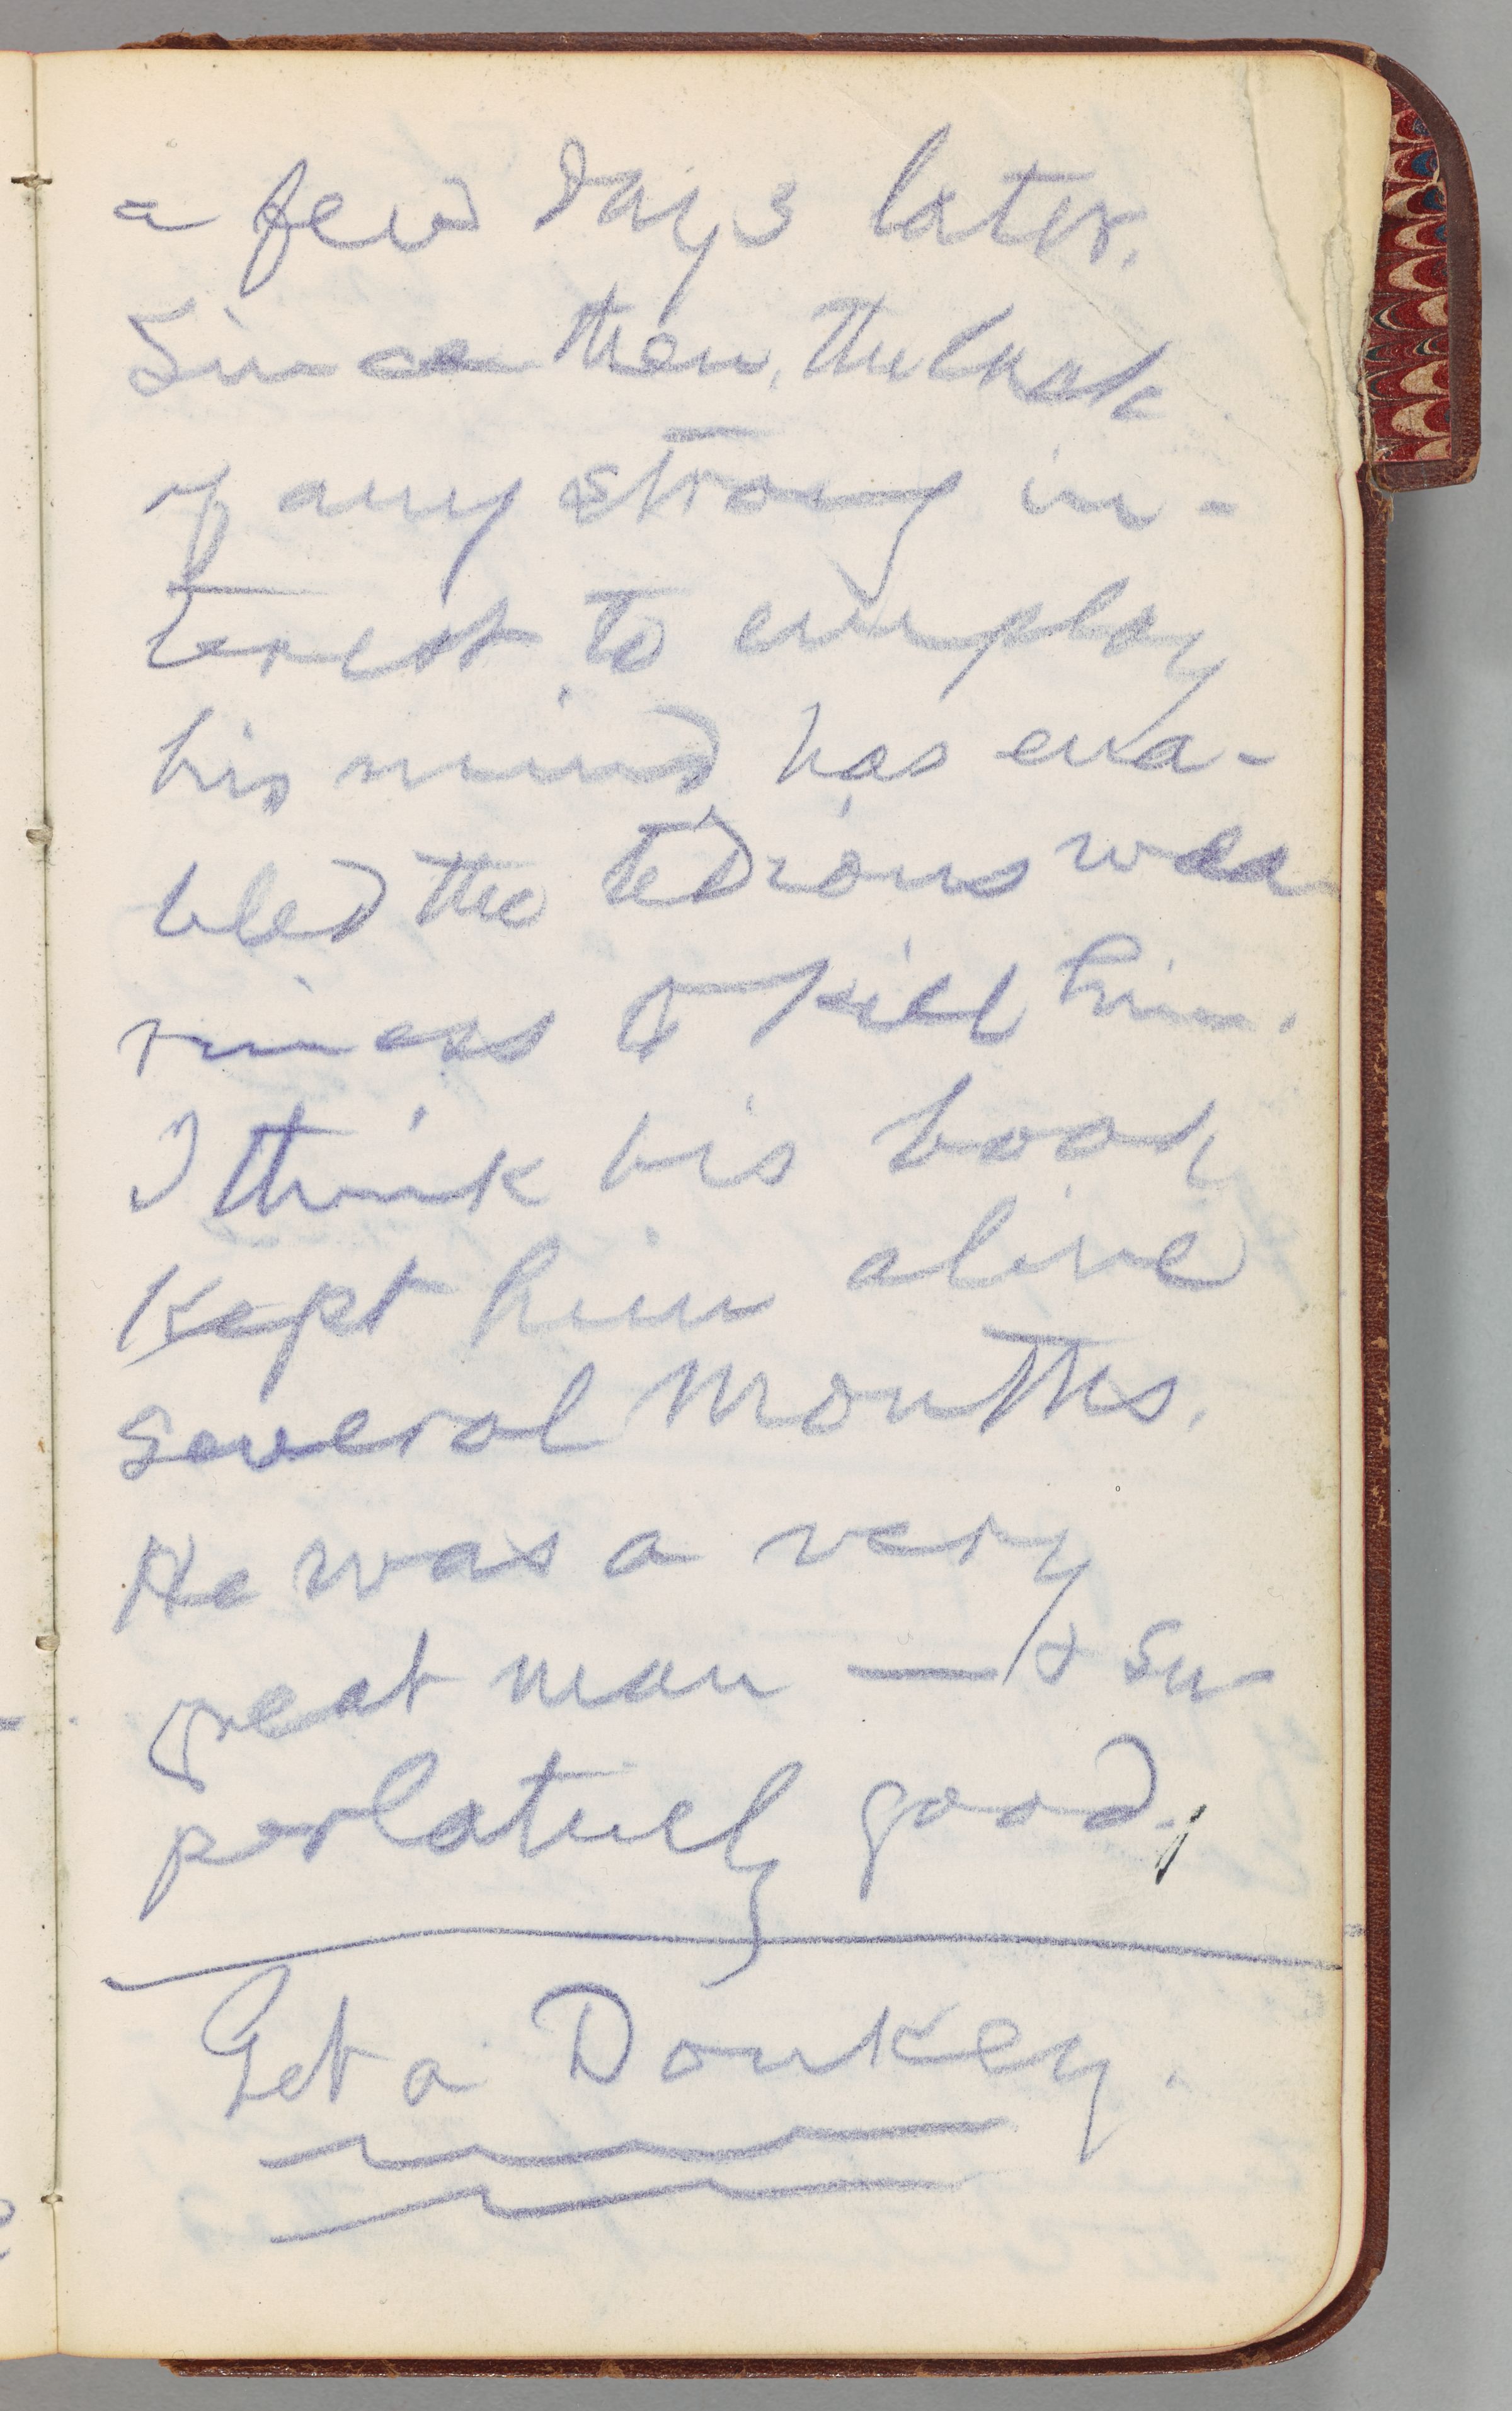 a few days later.
Since then, the lack
of any strong in-
terest to employ
his mind has ena-
bled the tedious wea
riness to kill him.
I think his book
kept him alive
several months.
He was a very
great man — & su
perlatively good.
Get a Donkey.